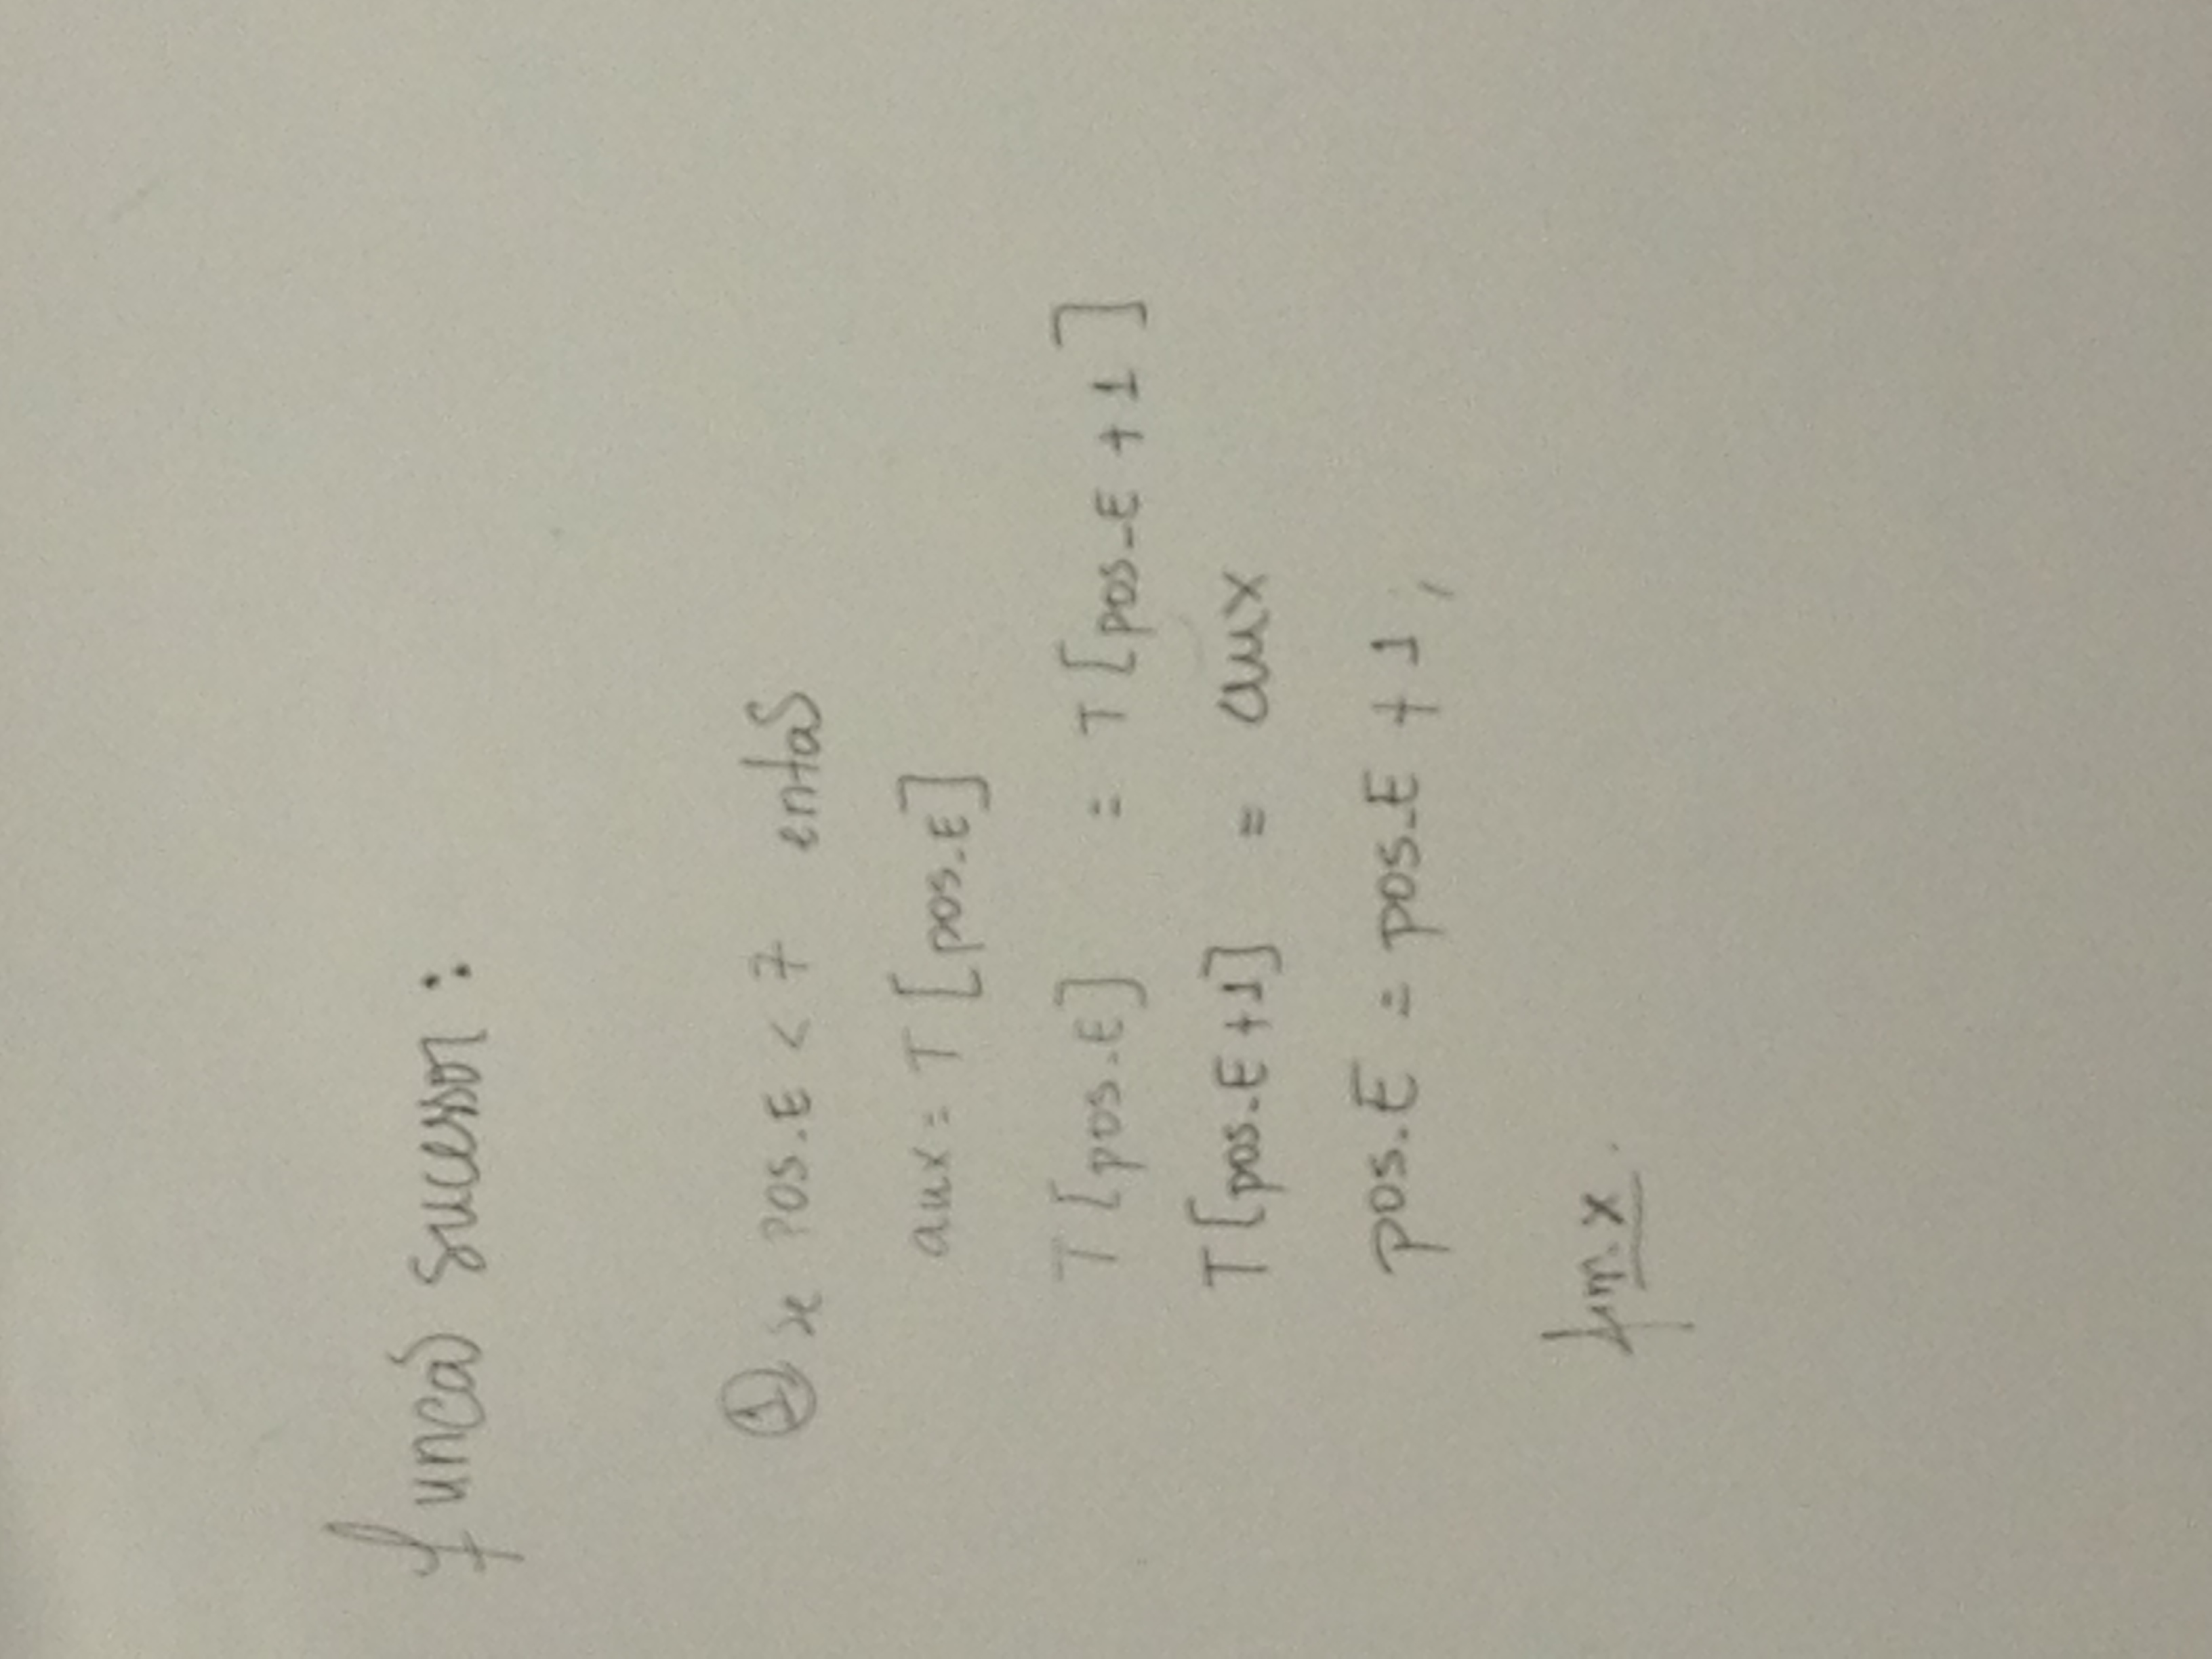 função sucessor:
① se pos_E < 7 então
aux = T [pos_E]
T [pos_E] = T [pos_E + 1]
T [pos_E + 1] = aux
pos_E = pos_E + 1;